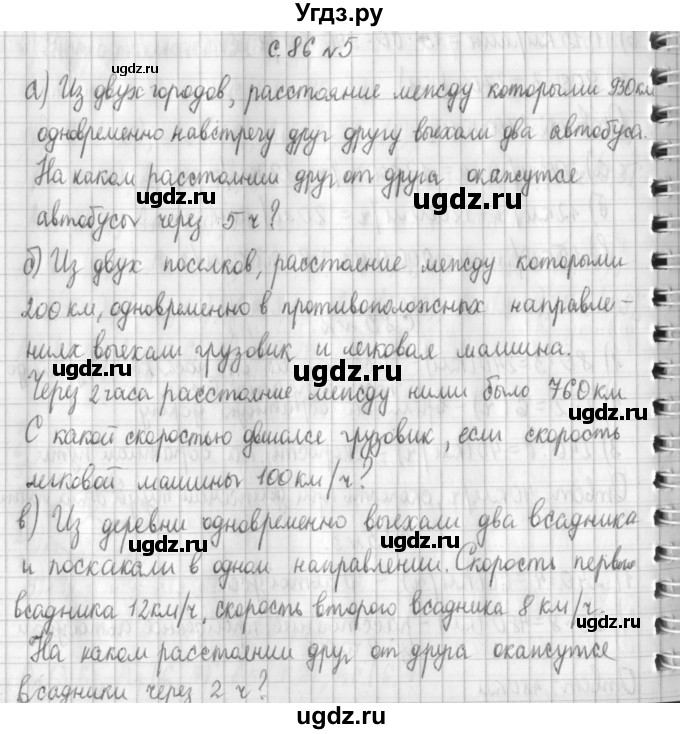 Угдз.ру
с. 86 №5
ugdz.ru
а) Из двух городов, расстояние между которыми 930 км
одновременно навстречу друг другу выехали два автобуса.
ugdz.ru
На каком расстоянии друг от друга окажутся
ugdz.ru ugdz.ru
автобусы через 5 ч?
б) Из двух поселков, расстояние между которыми
ugdz.ru
200 км, одновременно в противоположных направле-
ниях выехали грузовик и легковая машина.
ugdz.ru
Через 2 часа расстояние между ними было 760 км
С какой скоростью двигался грузовик, если скорость
ugdz.ru
легковой машины 100 км/ч?
ugdz.ru
в) Из деревни одновременно выехали два всадника
ugdz.ru
и поскакали в одном направлении. Скорость первого
ugdz.ru
всадника 12 км/ч, скорость второго всадника 8 км/ч.
На каком расстоянии друг от друга окажутся
ugdz.ru
всадники через 2 ч?
ugdz.ru